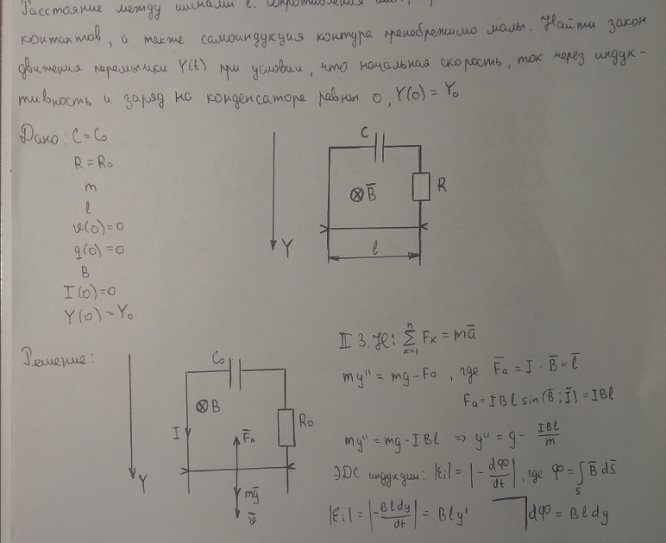 Расстояние между шинами l.
контактов, а также самоиндукция контура пренебрежимо малы. Найти закон
движения перемычки Y(t) при условии, что начальная скорость, ток через индук-
тивность и заряд на конденсаторе равны 0, Y(0) = Y₀
Дано: C = C₀
R = R₀
m
l
v(0) = 0
q(0) = 0
B
I(0) = 0
Y(0) = Y₀
Y
C
B̅
R
l
Решение:
Y
C₀
B
I
F̅ₐ
R₀
mg̅
v̅
II З.Н: ∑ₖ₌₁ⁿ Fₖ = ma̅
my'' = mg - Fa, где F̅ₐ = I · B̅ × l̅
Fₐ = IBl sin(B̅; I̅) = IBl
my'' = mg - IBl ⇒ y'' = g - IBl/m
ЭДС индукции: |εi| = |- dφ/dt|, где φ = ∫ₛ B̅ds̅
|εi| = |- Bldy/dt| = Bly' dφ = Bldy